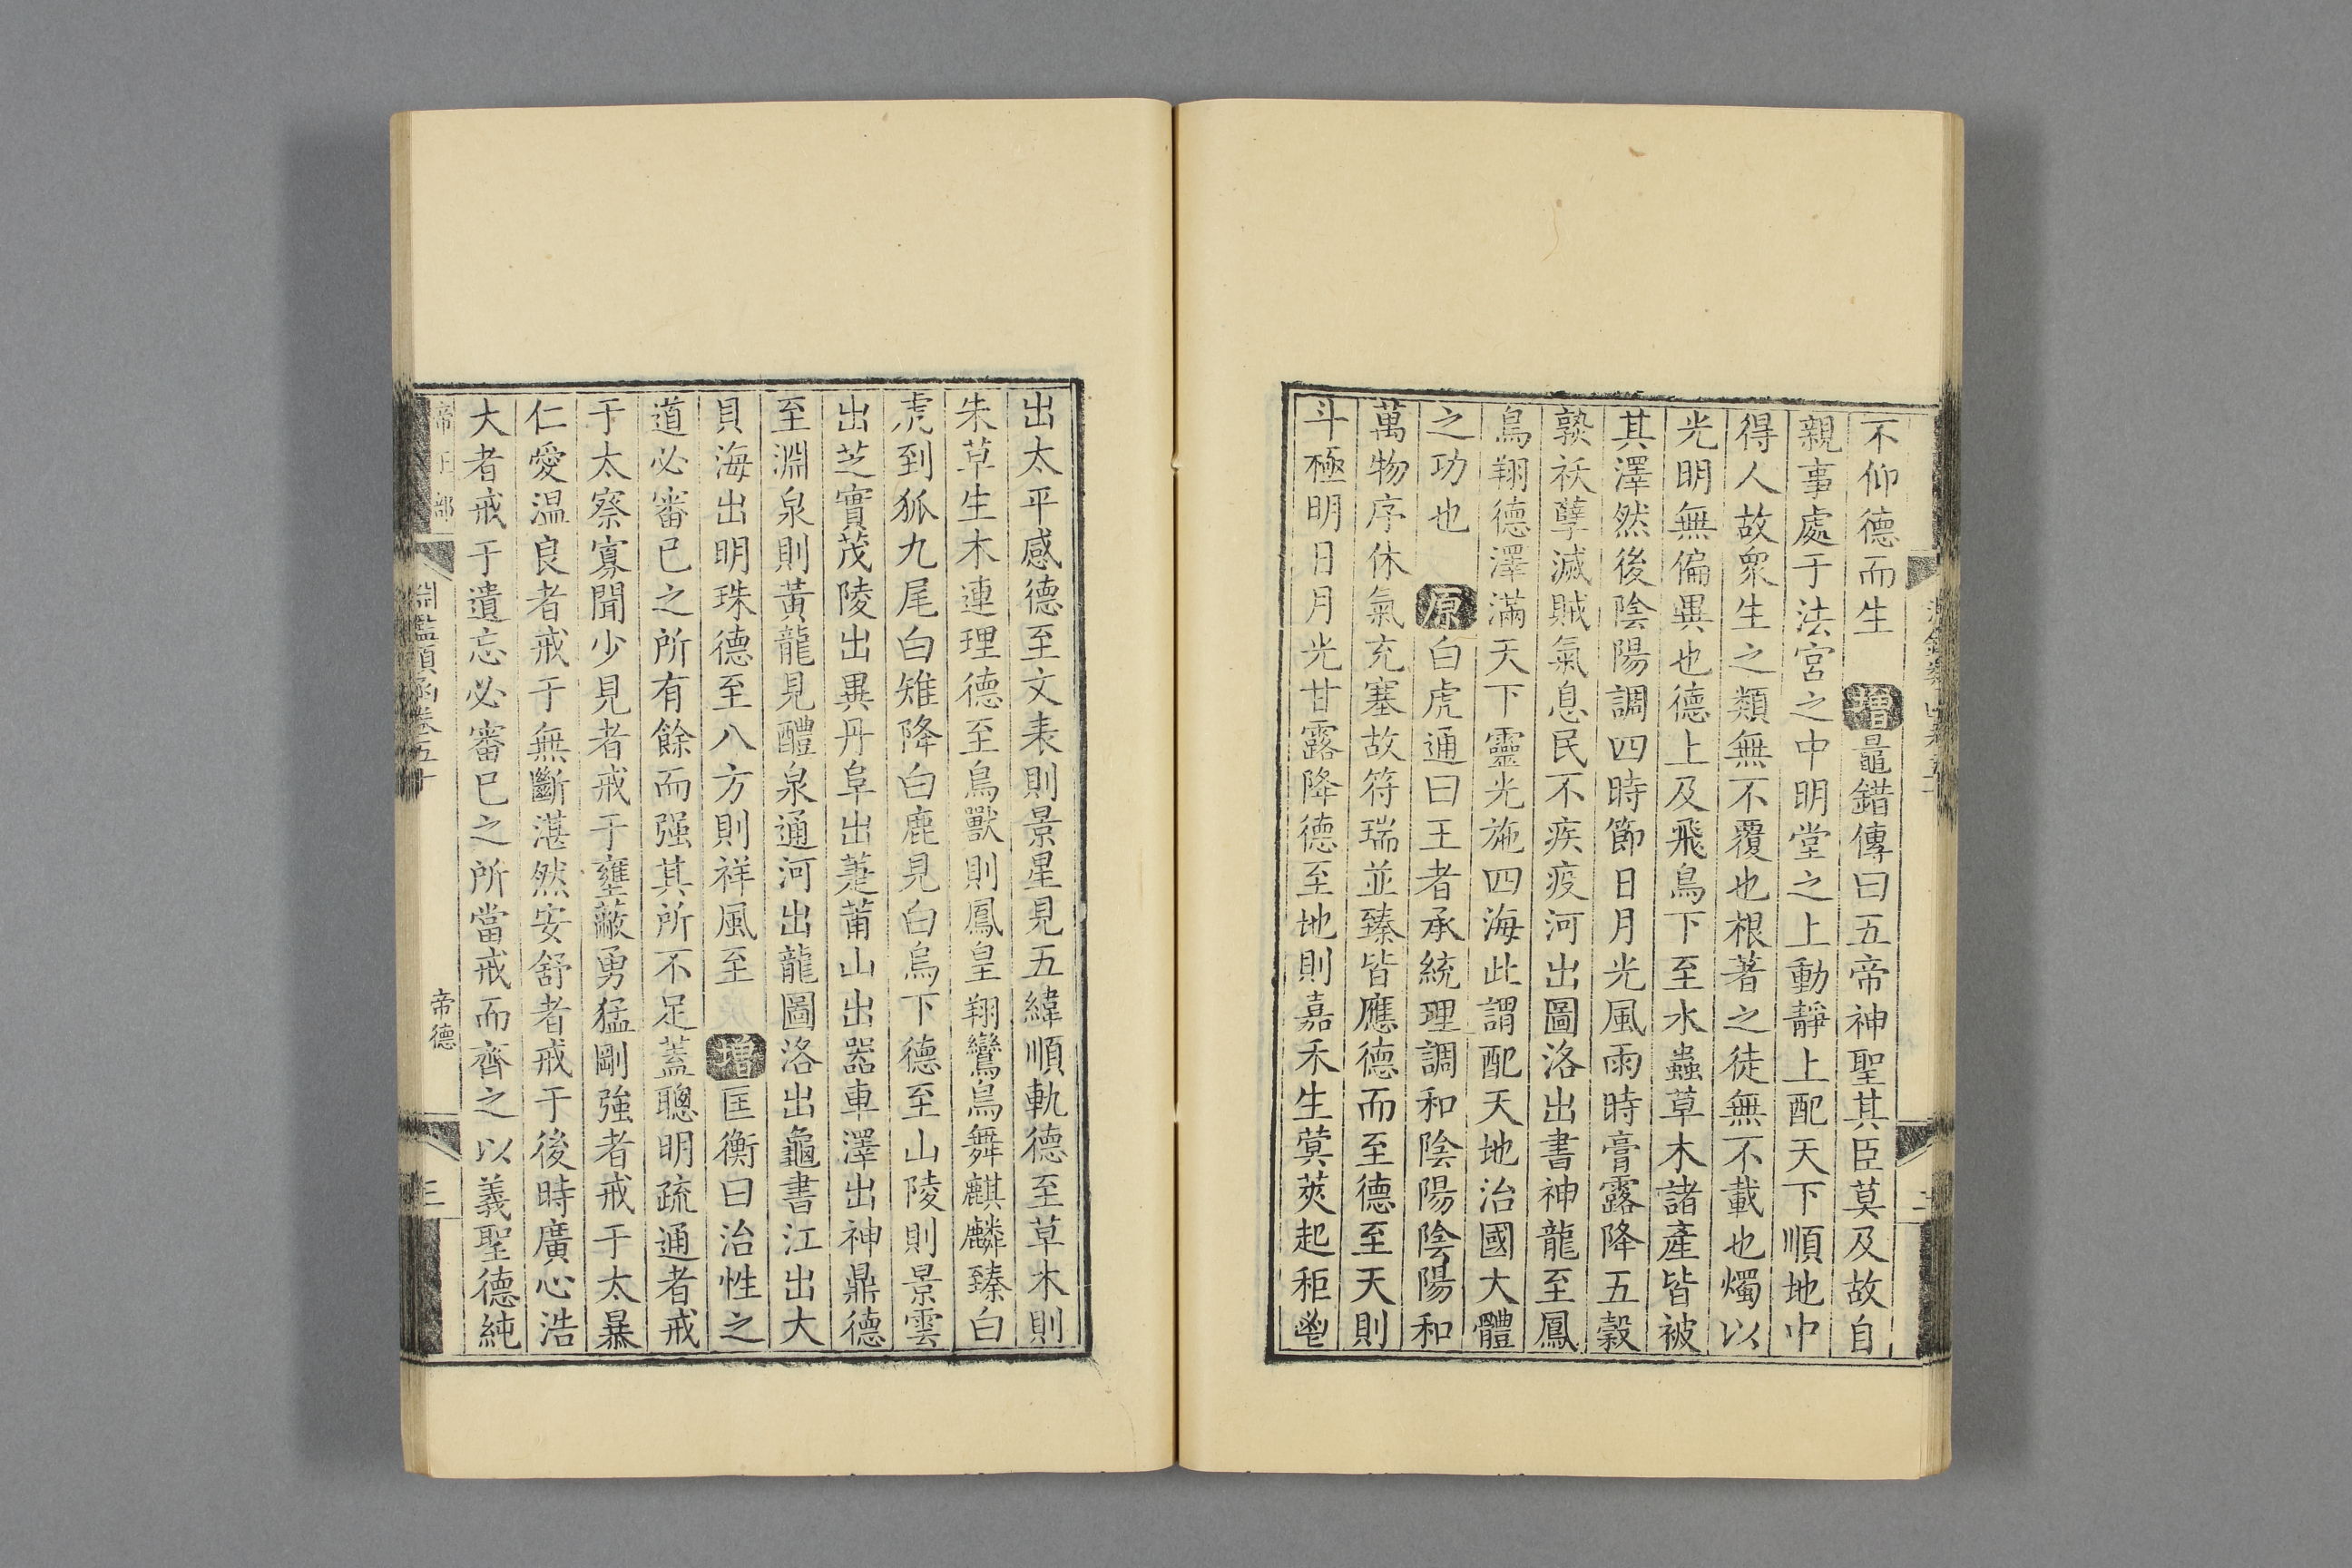 不仰德而生 增鼂錯傳曰五帝神聖其臣莫及故自
親事處于法宮之中明堂之上動靜上配天下順地中
得人故衆生之類無不覆也根著之徒無不載也燭以
光明無偏異也德上及飛鳥下至水蟲草木諸產皆被
其澤然後陰陽調四時節日月光風雨時膏露降五穀
孰祅孽滅賊氣息民不疾疫河出圖洛出書神龍至鳳
鳥翔德澤滿天下靈光施四海此謂配天地治國大體
之功也 原白虎通曰王者承統理調和陰陽陰陽和
萬物序休氣充塞故符瑞並臻皆應德而至德至天則
斗極明日月光甘露降德至地則嘉禾生蓂莢起秬鬯
出太平感德至文表則景星見五緯順軌德至草木則
朱草生木連理德至鳥獸則鳳皇翔鸞鳥舞麒麟臻白
虎到狐九尾白雉降白鹿見白烏下德至山陵則景雲
出芝實茂陵出異丹阜出萐莆山出器車澤出神鼎德
至淵泉則黃龍見醴泉通河出龍圖洛出龜書江出大
貝海出明珠德至八方則祥風至 增匡衡曰治性之
道必審己之所有餘而强其所不足蓋聰明疏通者戒
于太察寡聞少見者戒于壅蔽勇猛剛強者戒于太暴
仁愛温良者戒于無斷湛然安舒者戒于後時廣心浩
大者戒于遺忘必審己之所當戒而齊之以義聖德純
帝王部 淵鑑類函卷五十 帝德 三